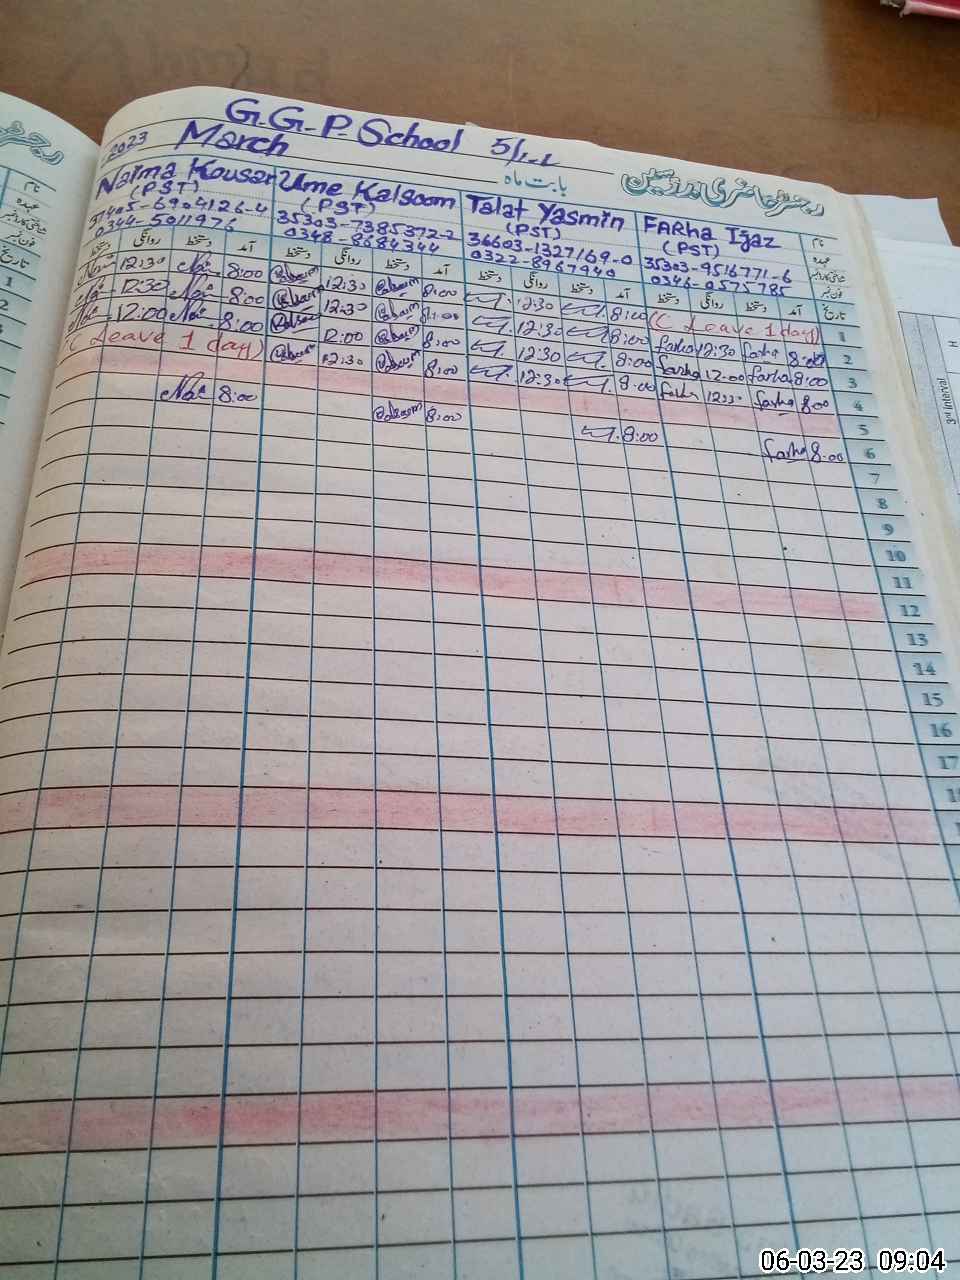 G.G.P. School 5/1-L
2023 March
بابت ماہ
رجسٹر حاضری مدرسین
Naima Kousar Ume Kalsoom Talat Yasmin FARha Ijaz نام
(PST) (PST) (PST) (PST) عہدہ
37405-6904126-4 35303-7385372-2 36603-1327169-0 35303-9516771-6
0344-5011976 0348-8684344 0322-8967940 0346-0575785
دستخط روانگی دستخط آمد دستخط روانگی دستخط آمد دستخط روانگی دستخط آمد دستخط روانگی دستخط آمد تاریخ
12:30 8:00 12:30 8:00 12:30 8:00 (Leave 1 day) 1
12:30 8:00 12:30 8:00 12:30 8:00 farha 12:30 farha 8:00 2
12:00 8:00 12:00 8:00 12:30 8:00 farha 12:00 farha 8:00 3
(Leave 1 day) 12:30 8:00 12:30 8:00 farha 12:30 farha 8:00 4
5
8:00 8:00 8:00 farha 8:00 6
7
8
9
10
11
12
13
14
15
16
17
3rd Interval
H
06-03-23 09:04